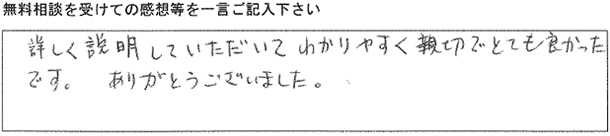 無料相談を受けての感想等を一言ご記入下さい
詳しく説明していただいてわかりやすく親切でとても良かった
です。 ありがとうございました。